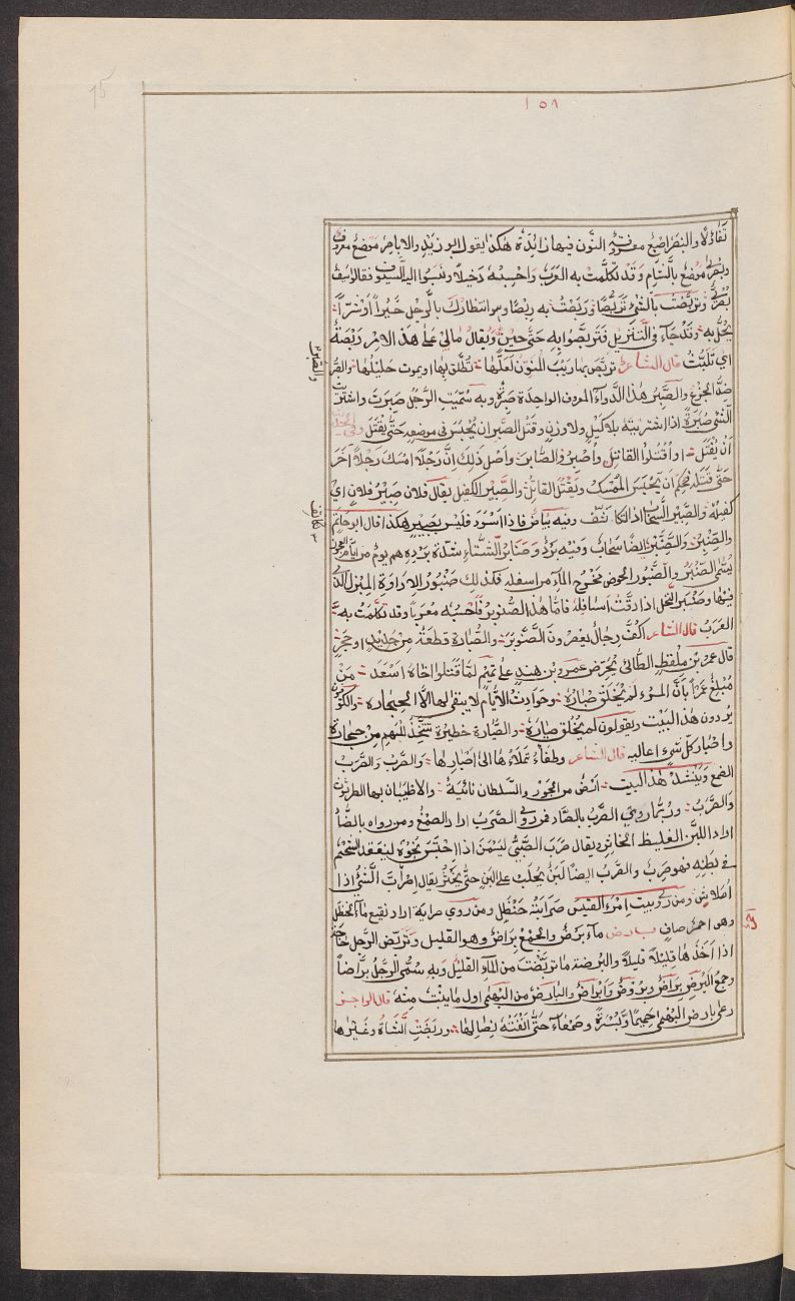 ١٥٨
15
تفاؤلا والبنصر اصبع معروفة النون فيها زائدة هكذا يقول ابو زيد والاباصر موضع معروف
وبصرى موضع بالشام وقد تكلمت به العرب واحسبه دخيلا ونسبوا اليه السيوف فقالوا سيف
بصرى وتربصت بالشئ تربصا وربصت به ربصا وهو انتظارك بالرجل خيرا او شرا
يحل به وقد جاء في التنزيل فتربصوا به حتى حين ويقال مالي على هذا الامر ربصة
اي تلبث قال الشاعر تربص بها ريب المنون لعلها تطلق يوما او يموت حليلها والصبر
ضد الجزع والصبر هذا الدواء المعروف الواحدة صبرة وبه سميت الرجل صبرت واشتريت
الشئ صبرة اذا اشتريته بلا كيل ولا وزن وقتل الصبر ان يحبس في موضعه حتى يقتل وفي الحديث
ان يقتل اقتلوا القاتل واصبروا الصابر واصل ذلك ان رجلا امسك رجلا اخر
حتى قتله فحكم ان يحبس الممسك ويقتل القاتل والصبير الكفيل يقال فلان صبير فلان اي
كفيله والصبير السحاب اذا تكاثف وفيه بياض فاذا اسود فليس بصبير هكذا قال ابو حاتم
والصنبر والصنبر ايضا سحاب وفيه برد وصنابر الشتاء شدة برده هم يوم من ايام العجوز
يسمى الصنبر والصنبور الحوض مخرج الماء من اسفله فكذلك صنبور الاداوة المبزل الذي
فيها وصنبر النخل اذا دقت اسافله فاما هذا الصنوبر فاحسبه معربا وقد تكلمت به
العرب قال الشاعر اكف رجال يعصرون الصنوبر والصبارة قطعة من حديد او حجر
قال عمرو بن ملقط الطائي يحرض عمرو بن هند على تميم لما قتلوا اخاه اسعد من
مبلغ عمرا بان المرء لم يخلق صبارة وحوادث الايام لا يبقى لها الا الحجارة والكوفيون
يردون هذا البيت ويقولون لم يخلق صيارة والصيارة خطيرة تتخذ للبهم من حجارة
واصبار كل شئ اعاليه قال الشاعر وطفاء تملاءها الى اصبارها والصرب والصرب
الصمغ وينشد هذا البيت ارض من الجور والسلطان نائية والاطيبان بها الطرثوث
والصرب وربما روي الصرب بالصاد فمن روى الصرب اراد الصمغ ومن رواه بالضاد
اراد اللبن الغليظ الخاثر ويقال صرب الصبى ليسمن اذا احتبس نجوه لينعقد الشحم
في بطنه فهو صرب والصرب ايضا لبن يحلب على اللبن حتى يخثر يقال اصرأب الشئ اذا
املاس ومن روى بيت امرء القيس صرابة حنظل ومن روى صراية اراد نقيع ماء الحنظل
وهو احمر صاف ب ا ر ض ماء برض والجمع براض وهو القليل وتربض الرجل حاجته
اذا اخذها قليلا قليلا والبرضة ما تربضت من الماء القليل وبه سمى الرجل براضا
وجمع البرض براض وبروض وابراض والبارض من البهمى اول ما ينبت منه قال الراجز
رعى بارض البهمى جميما وبسرة وصمعاء حتى انفته نصالها وربضت الشاة وغيرها